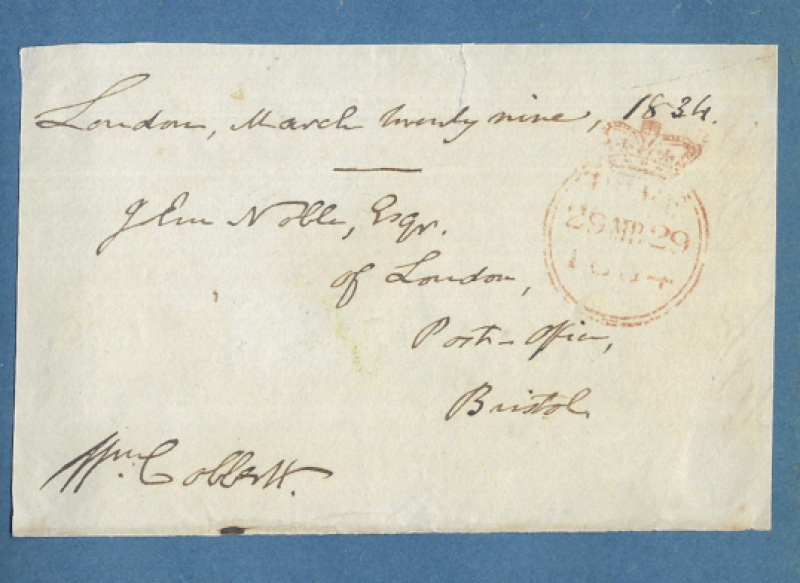 London, March twenty nine, 1834.
Noble, Esqr.
of London,
Post-Office,
Bristol.
Wm. Cobbett.
FREE
29 MR 29
1834